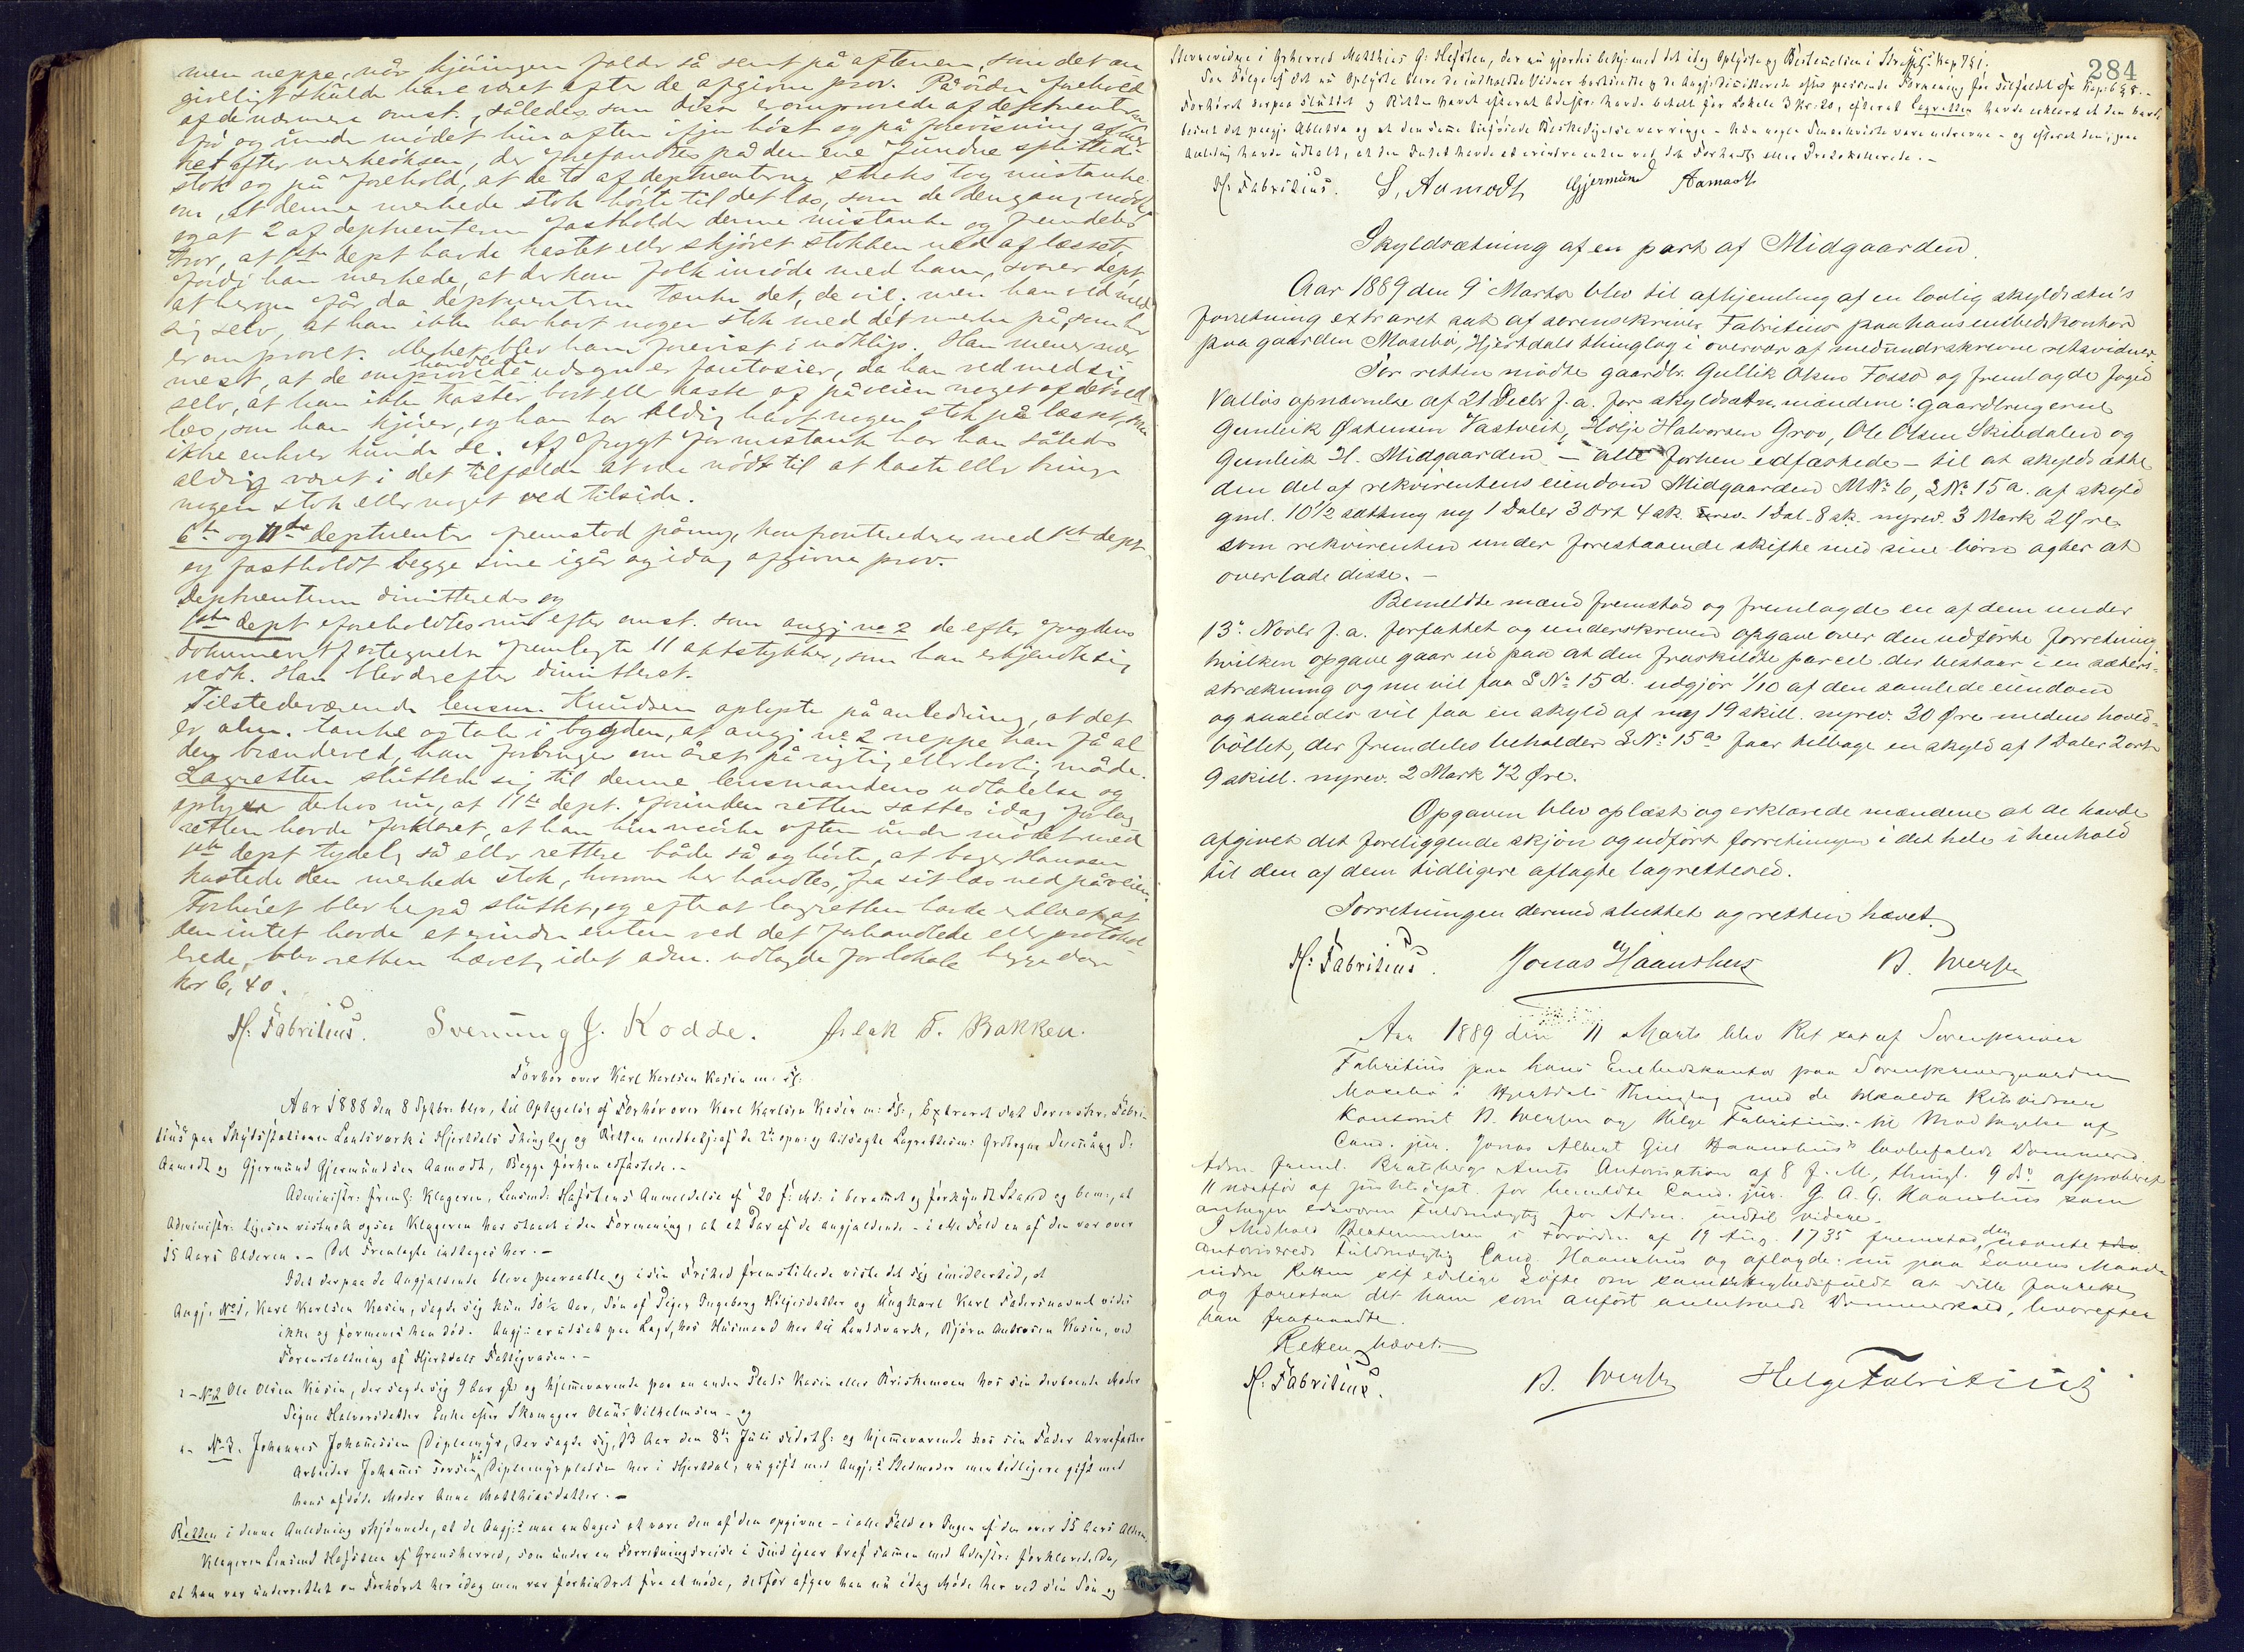 men neppe, når kjöringen falde så sent på aftenen, som det an
givelig skulde have været efter de afgivne prov. På order foreholdt
af de nærmere omst., således som disse er omprovede af deptnenterne
för og under mödet hin aften ifjor höst og på forevisning af mær
ket efter merkeöksen, der
stok og på forehold, at de to af deptnenterne straks tog mistanke
om, at denne merkede stok hörte til det las, som de dengang mödte
og at 2 af deptnenterne fastholder denne mistanke og fremdeles
tror, at 1ste dept havde kastet eller skjövet stokken ned af læsset,
fordi han merkede, at der kom folk imöde med ham, svarer dept.
at herom får da deptnenterne tænke det, de vil; men han ved med
sig selv, at han ikke har havt nogen stok med det merke på som her
er omprovet. Merket blev ham forevist i udklip. Han mener nær
mest, at de omhandlede udsagn er fantasier, da han ved med sig
selv, at han ikke kaster bort eller kaste af på veien noget af det ved
læs, som han kjörer, og han har aldrig havt nogen stok på læsset, som
ikke enhver kunde se. Af frygt for mistanke har han således
aldrig været i det tilfælde at være nödt til at kaste eller bringe
nogen stok eller noget ved tilside.
6te og 11te deptnenter fremstod påny, konfronteredes med 1ste dept
og fastholdt begge sine igår og idag afgivne prov.
Deptnenterne dimitteredes og
1ste dept foreholdtes nu efter omst. som angj. no 2 de efter fogdens
dokumentfortegnelse fremlagte 11 aktstykker, som han erkjendte sig
vedk. Han blev derefter dimitteret.
Tilstedeværende lensm. Knudsen oplyste på anledning, at det
er alm. tanke og tale i bygden, at angj. no 2 neppe kan få al
den brændeved, han forbruger om året på rigtig eller lovlig måde.
Lagretten sluttede sig til denne lensmandens udtalelse og
oplyser derhos nu, at 11te dept. forinden retten sattes idag for lag
retten havde forklaret, at han hin mörke aften under mödet med
1ste dept tydelig så eller rettere både så og hörte, at bager Hansen
kastede den merkede stok, hvorom her handles, fra sit las ned på veien.
Forhöret blev herpå sluttet, og efterat lagretten havde erklæret, at
den intet havde at erindre enten ved det forhandlede eller protokol
lerede, blev retten hævet, idet adm. udlagde for lokale begge dage
kr 6,40.
H. Fabritius. Svenung J. Kodde. Aslak T. Bakken.
Forhör over Karl Karlsen Kasin m: fl:
Aar 1888 den 8 Sptbr. blev, til Optagelse af Forhör over Karl Karlsen Kasin m: fl:, Extraret sat Sorenskr. Fabri
tius paa Skydsstationen Landsvark i Hjertdals Thinglag og Retten medbetj: af de 2de opn: og tilsagte Lagrettesm: Grdbrgne Svenung S.
Aamodt og Gjermund Gjermundsen Aamodt, Begge forhen edfæstede. -
Administr: freml: Klageren, Lensmd: Hafstens Anmeldelse af 20 f: Md: i berammet og forkyndt Stand og bem:, at
Administr: ligesom vistnok ogsaa Klageren har staaet i den Formening, at et Par af de angjældende - i alle Fald en af dem var over
15 Aars Alderen. - Det Fremlagte indtages her. -
Idet derpaa de Angjældende bleve paaraabte og i sin Frihed fremstillede viste det sig imidlertid, at
Angj. No 1, Karl Karlsen Kasin, sagde sig kun 10½ Aar, Sön af Pigen Ingeborg Hiljesdatter og Ungkarl Karl Fadersnavnet vides
ikke og formenes han död. Angj: er udsat paa Lægd, hos Husmand her til Landsvark, Björn Andersen Kasin, ved
Foranstaltning af Hjertdals Fattigvæsen. -
" - No 2 Ole Olsen Kasin, der sagde sig 9 Aar gl: og hjemmeværende paa en anden Plads Kasin eller Briskemoen hos sin derboende Moder
Signe Halvorsdatter Enke efter Skomager Olaus Vilhelmsen - og
" - No 3. Johannes Johannessen Diplemyr, der sagde sig, 13 Aar den 8de Juli sidstl: og hjemmeværende hos sin Fader Arvefæster
Arbeider Johannes Torsen på Diplemyrpladsen her i Hjertdal, nu gift med Angj:s Stedmoder men tidligere gift med
hans afdöde Moder Anne Matthiasdatter. -
Retten i denne Anledning skjönnede, at de Angj:e maa antages at være den af dem opgivne - i alle Fald er Ingen af dem over 15 Aars Alderen.
Klageren Lensmd Hafsteen af Gransherred, som under en Forretningsreise i Tind igaar traf sammen med Adm:str: forklarede da,
at han var underrettet om Forhöret her idag men var forhindret fra at möde, derfor afgav han nu idag Möde her ved sin Sön og
284
Stevnevidne i Gransherred Matthias G: Hafsten, der nu gjordes bekj: med det idag Oplyste og Bestemmelsen i Straffel: Kap 7 § 1.
Som Fölge af det nu Oplyste bleve de indkaldte Vidner
Forhöret derpaa sluttet og Retten hævet efterat Administr: havde betalt for Lokale 3 Kr: 20, efterat Lagretten havde erklæret
Anledning havde udtalt, at den Intet havde at erindre enten ved det Forhandl: eller Protokollerede. -
H. Fabritius. S. Aamodt Gjermund Aamodt
Skyldsætning af en part af Midgaarden.
Aar 1889 den 9de Marts blev til afhjemling af en lovlig skyldsætn's
forretning extraret sat af sorenskriver Fabritius paa hans embedskontor
paa gaarden Mosebö, Hjertdals thinglag i overvær af medundrskrevne retsvidner.
For retten mödte gaardbr. Gullik Olsen Fosso og fremlagde foged
Valløs opnævnelse af 21 Decbr f. a. for skyldsætn. mændene: gaardbrugerne
Gunleik Østensen Vastveit, Hölje Halvorsen Grov, Ole Olsen Skibdalen og
Gunleik H. Midgaarden - alle forhen edfæstede - til at skyldsætte
den del af rekvirentens eiendom Midgaarden MNo 6, LNo 15 a. af skyld
gml. 10½ sætting ny 1 Daler 3 Ort 4 sk. 1 Dal. 8 sk. nyrev. 3 Mark 2 Øre
som rekvirenten under forestaaende skifte med sine börn agter at
overlade disse. -
Bemeldte mænd fremstod og fremlagde en af dem under
13de Novbr f. a. forfattet og underskreven opgave over den udförte forretning
hvilken opgave gaar ud paa at den fraskildte parcel der bestaar i en sæter-
strækning og nu vil faa LNo 15 d. udgjör 1/10 af den samlede eiendom
og saaledes vil faa en skyld af ny 19 skill. nyrev. 30 Øre medens hoved-
böllet, der fremdeles beholder LNo 15 a faar tilbage en skyld af 1 Daler 2 ort
9 skill. nyrev. 2 Mark 72 Øre.
Opgaven blev oplæst og erklærede mændene at de havde
afgivet det foreliggende skjön og udfört forretningen i det hele i henhold
til den af dem tidligere aflagte lagretteed.
Forretningen dermed sluttet og retten hævet.
H. Fabritius. Jonas Haanshus B. Iversen
Aar 1889 den 11 Marts blev Ret sat af Sorenskriver
Fabritius paa hans Embedskontor paa Sorenskrivergaarden
Mosebö i Hjertdals Thinglag med de tilkaldte Retsvidner
Kontorist B. Iversen og Helge Fabritius til Modtagelse af
Cand. jur. Jonas Albert Giel Haanshus's lovbefalede Dommered.
Adm. freml. Bratsbergs Amts Autorisation af 8 f. M., thingl. 9 ds approberet
for bemeldte Cand. jur. J. A. G. Haanshus som
antagen edsvoren fuldmægtig for Adm. indtil videre.
I Medhold Bestemmelsen i Forordn. af 19 Aug. 1735 fremstod den nævnte
autoriserede Fuldmægtig Cand. Haanshus og aflagde nu paa Lovens Maade
inden Retten sit edelige Löfte om samvittighedsfuldt at ville forrette
og forestaa det ham som anfört anbetroede Dommerkald, hvorefter
han fratraadte.
Retten hævet.
H. Fabritius. B. Iversen Helge Fabritius